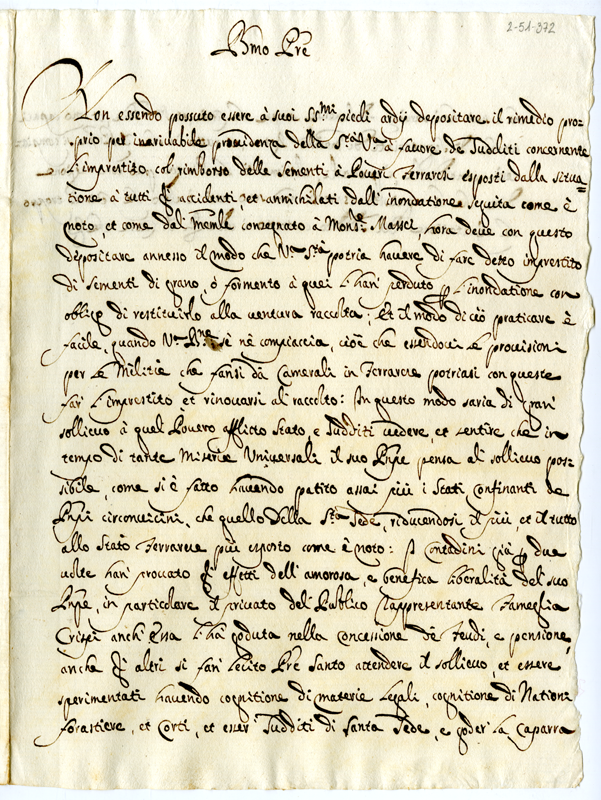 2-51-372
Bmo Pre
Non essendo possuto essere à suoi SSmi piedi ardij depositare il rimedio pro=
prio per invariabile providenza della Sta Va à favore de Sudditi concernente
l'imprestito col rimborso delle Sementi à Poveri Ferraresi esposti dalla situa=
tione à tutti gl'accidenti, et annichilati dall'inondatione seguita come è
noto, et come dal Memle consegnato à Monsre Massei, hora deve con questo
depositare annesso il modo che Va Stà potria havere di fare detto imprestito
di Sementi di grano, ò formento à quei l'han' perduto p l'inondatione con
obligo di restituirlo alla ventura raccolta; Et il modo di ciò praticare è
facile, quando Va Bne si nè compiaccia, cioè che essendovi le provisioni
per le Militie che fansi dà Camerali in Ferrarese potriasi con queste
far' l'imprestito et rinovarsi al raccolto: In questo modo saria di gran'
sollievo à quel Povero afflicto Stato, e Sudditi vedere, et sentire che in
tempo di tante Miserie Universali il suo Pnpe pensa al sollievo pos=
sibile, come si è fatto havendo patito assai più i Stati Confinanti de
Pnpi circonvicini, che quello della Sta Sede, riducendosi il più, et il tutto
allo Stato Ferrarese più esposto come è noto: I Contadini già p due
volte han' provato gl'effetti dell'amorosa, e benefica liberalità del suo
Pnpe, in particolare il privato del Publico Rappresentante Fameglia
Crispi anch'essa l'hà goduta nella concessione de Feudi, e pensione,
anche gl'altri si fan' lecito Pre Santo attendere il sollievo, et essere
sperimentati havendo cognitione di materie legali, cognitione di Nationi
forastiere, et Corti, et esser' Sudditi di Santa Sede, e goder' la Caparra